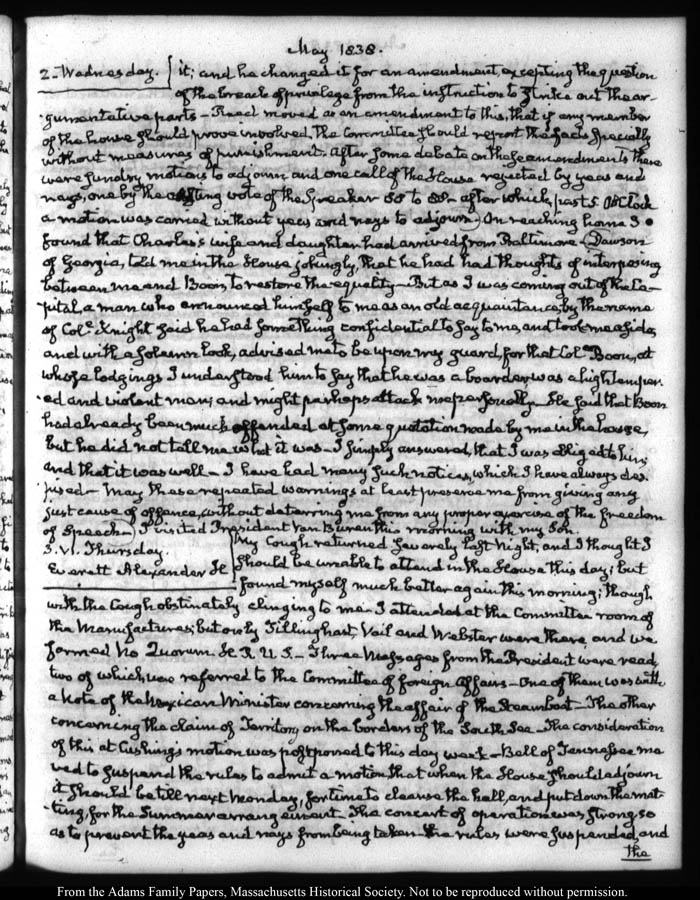 May 1838.
2. Wednesday. it; and he changed it for an amendment, excepting the question
of the breach of privilege from the instruction to strike out the ar-
gumentative parts – Read moved as an amendment to this, that if any member
of the house should prove involved, the Committee should report the facts specially
without measures of punishment. After some debate on these amendments there
were sundry motions to adjourn and one call of the House rejected by yeas and
nays, one by the casting vote of the Speaker 88 to 88 – after which, past 5 O'Clock
a motion was carried without yeas and nays to adjourn – On reaching home I
found that Charles's wife and daughter had arrived from Baltimore – Dawson
of Georgia, told me in the House jokingly, that he had had thoughts of interposing
between me and Boon, to restore the equality – But as I was coming out of the Ca-
pitol, a man who announced himself to me as an old acquaintance, by the name
of Col. Knight said he had something confidential to say to me, and took me aside,
and with a solemn look, advised me to be upon my guard, for that Col. Boon, at
whose lodgings I understood him to say that he was a boarder, was a high temper-
ed and violent man, and might perhaps attack me personally – He said that Boon
had already been much offended at some quotation made by me in the house,
but he did not tell me what it was – I simply answered, that I was obliged to him,
and that it was well – I have had many such notices, which I have always des-
pised – May these repeated warnings at least preserve me from giving any
just cause of offence, without deterring me from any proper exercise of the freedom
of speech – I visited President Van Buren this morning with my Son.
3. VI. Thursday. My Cough returned severely last Night, and I thought I
Everett Alexander H should be unable to attend in the House this day; but
found myself much better again this morning; though
with the Cough obstinately clinging to me. I attended at the Committee room of
the Manufactures; but only Tillinghast, Vail and Webster were there, and we
formed No Quorum. H. R. U. S. – Three Messages from the President were read,
two of which were referred to the Committee of foreign Affairs – One of them was with
a Note of the Mexican Minister concerning the affair of the Steamboat – The other
concerning the claim of Territory on the borders of the South Sea – The consideration
of this at Cushing's motion was postponed to this day week – Bell of Tennessee mo-
ved to suspend the rules to admit a motion that when the House should adjourn
it should be till next Monday, for time to cleanse the hall, and put down the mat-
ting, for the Summer arrangement. The concert of operation was strong so
as to prevent the yeas and nays from being taken – the rules were suspended, and
the
From the Adams Family Papers, Massachusetts Historical Society. Not to be reproduced without permission.